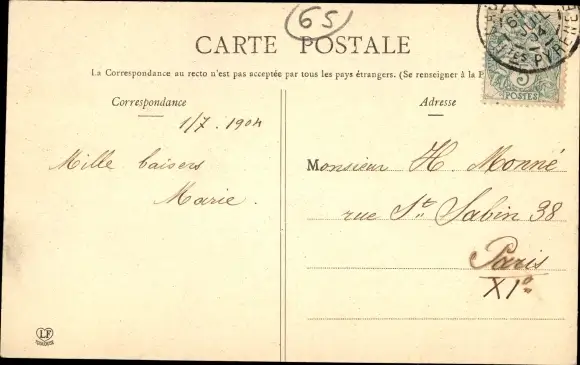 65
CARTE POSTALE
La Correspondance au recto n'est pas acceptée par tous les pays étrangers. (Se renseigner à la
Correspondance
Adresse
1/7. 1904
Mille baisers
Marie.
Monsieur H. Monné
rue St Sabin 38
Paris
XIe
5
POSTES
PYRENEES
LF